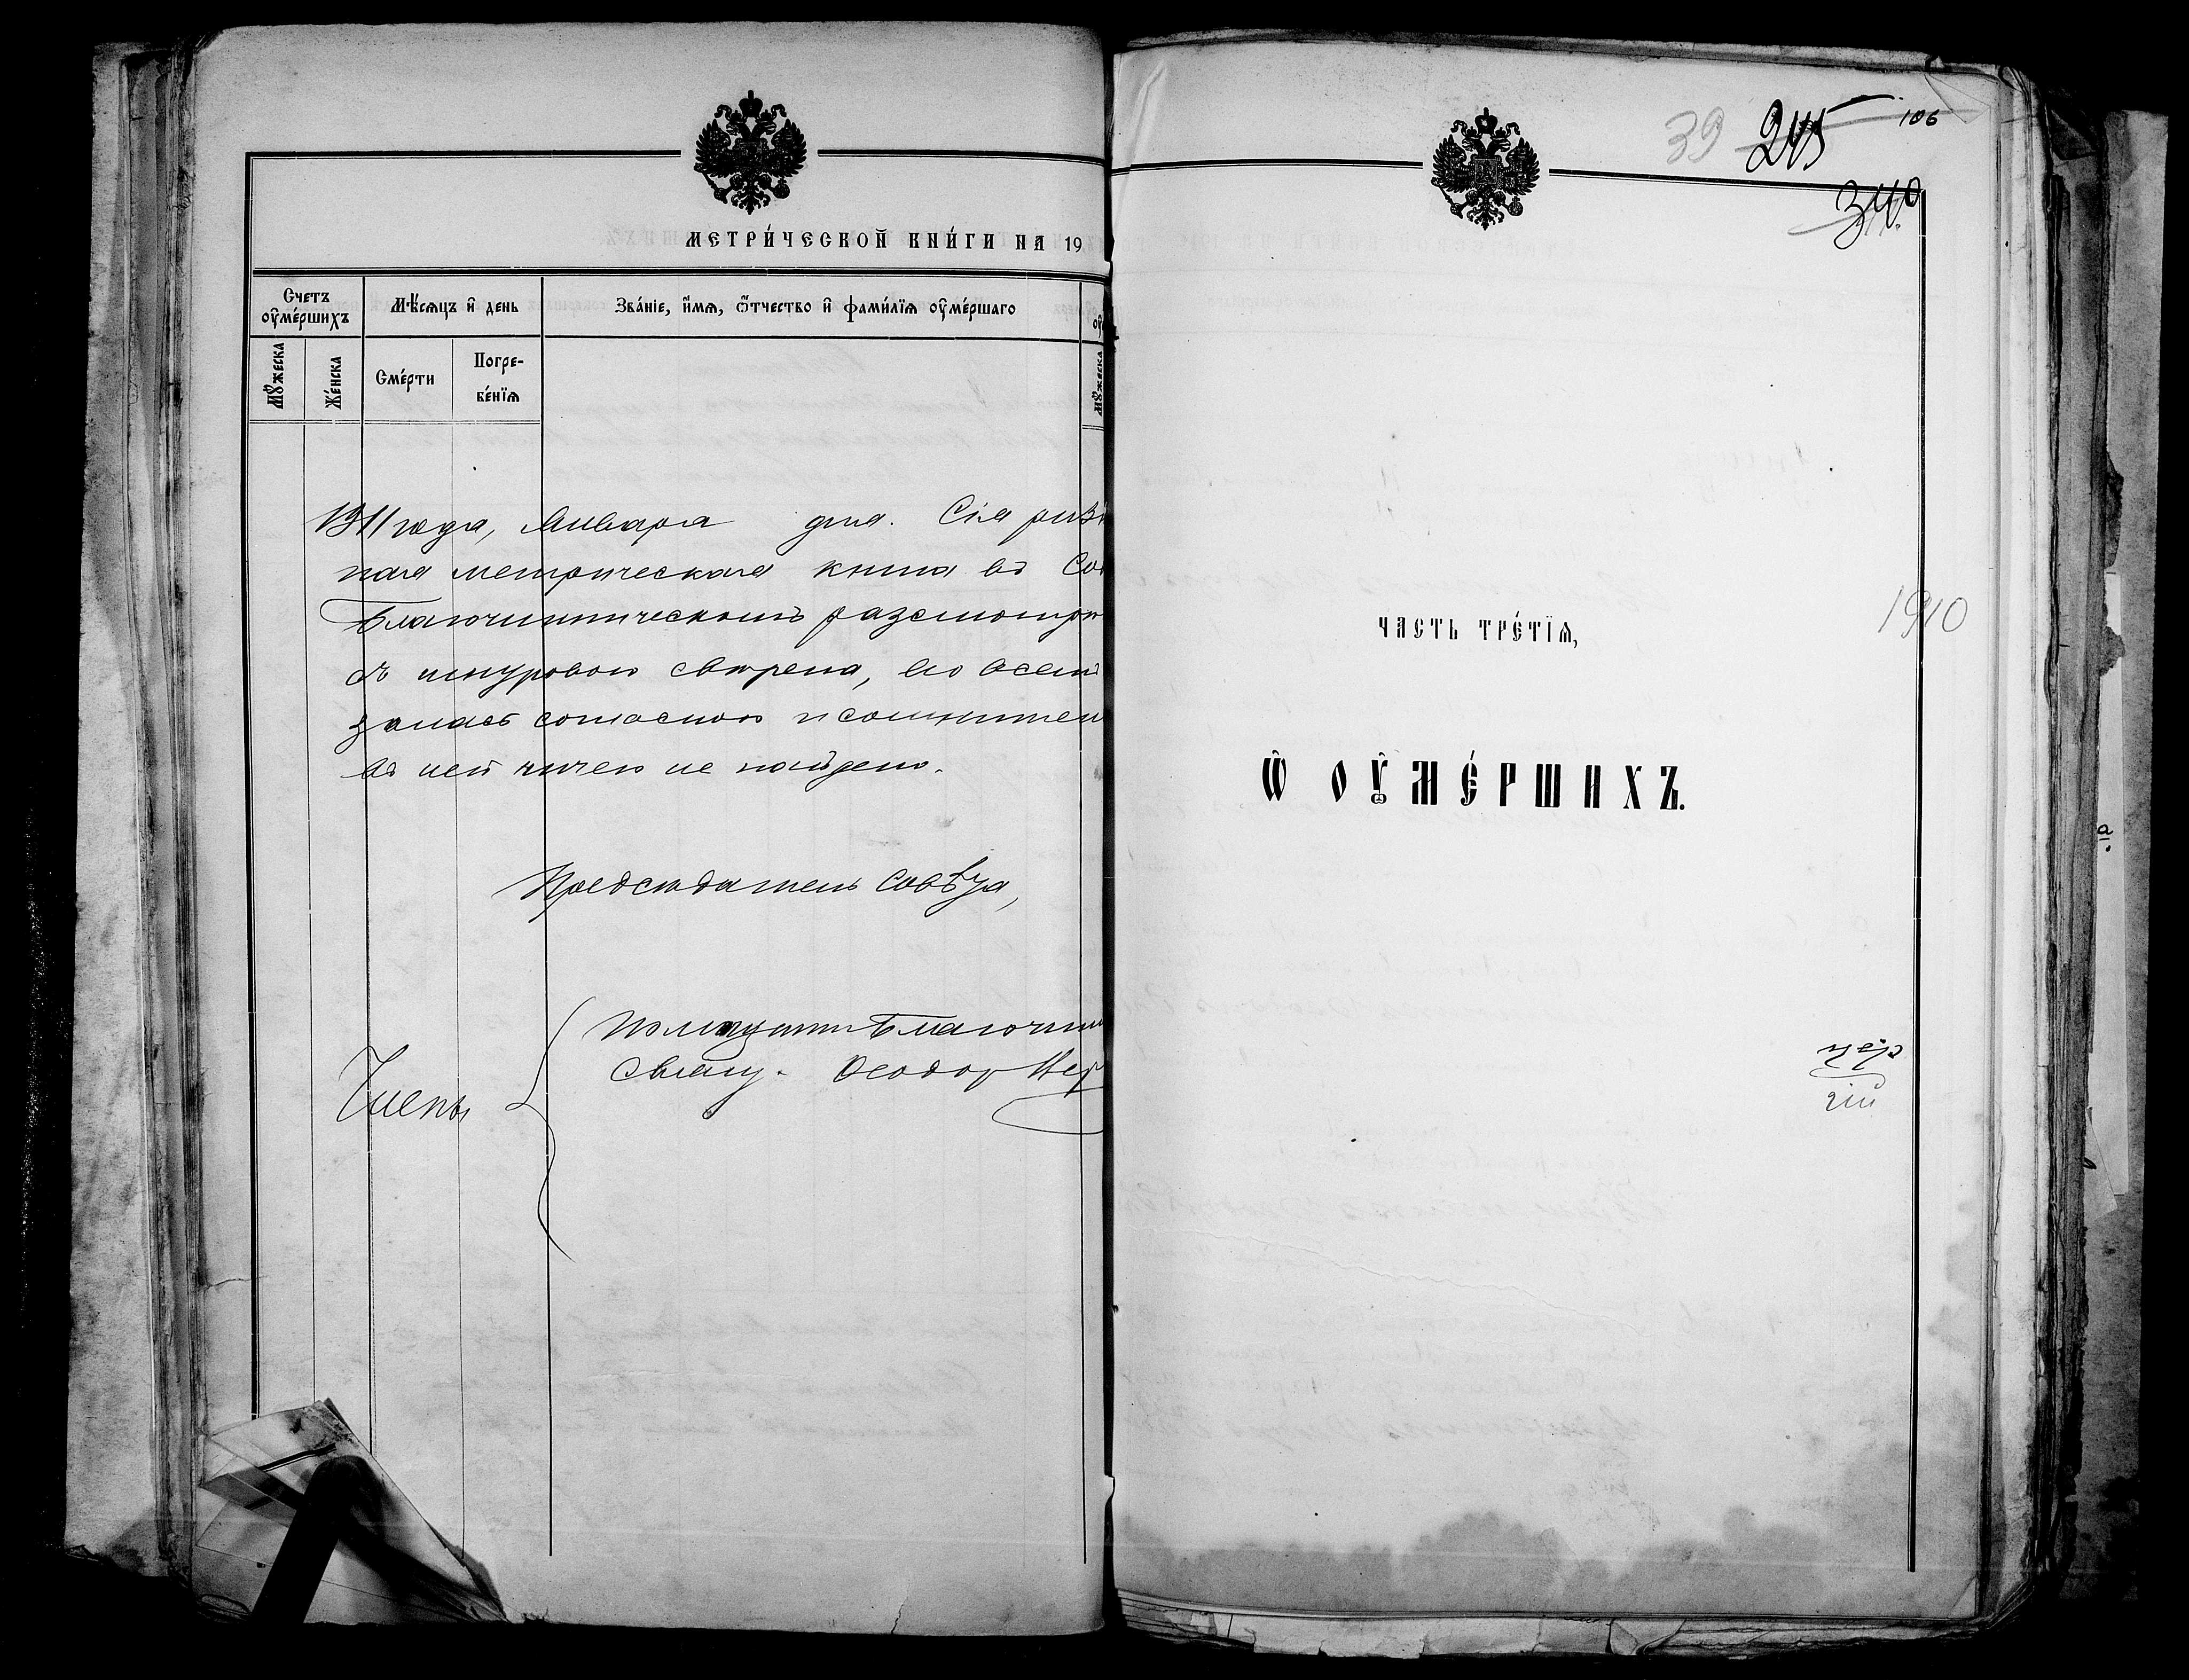 МЕТРИ́ЧЕСКОЙ КНИ́ГИ НА 19
Счетъ оу҆ме́ршихъ
Мѣ́сѧцъ и҆ день
Зва́нїе, и҆́мѧ, ѻ҆́тчество и҆ фами́лїѧ оу҆ме́ршаго
Мꙋ́жеска
Же́нска
Сме́рти
Погре-
бе́нїѧ
Мꙋ́жеска
1911 года, Января дня. Сія
ная метрическая книга въ Со
Благочинническомъ разсмотрѣ
съ шнуровою свѣрена, во всемъ
залась согласною и сомнител
въ ней ничего не найдено.
Предсѣдатель Совѣта,
Члены
Помощник Благочин
Священ. Ѳеодор
39 245 106
340
ЧАСТЬ ТРЕ́ТЇѦ,
1910
Ѽ ОУ҆МЕ́РШИХЪ.